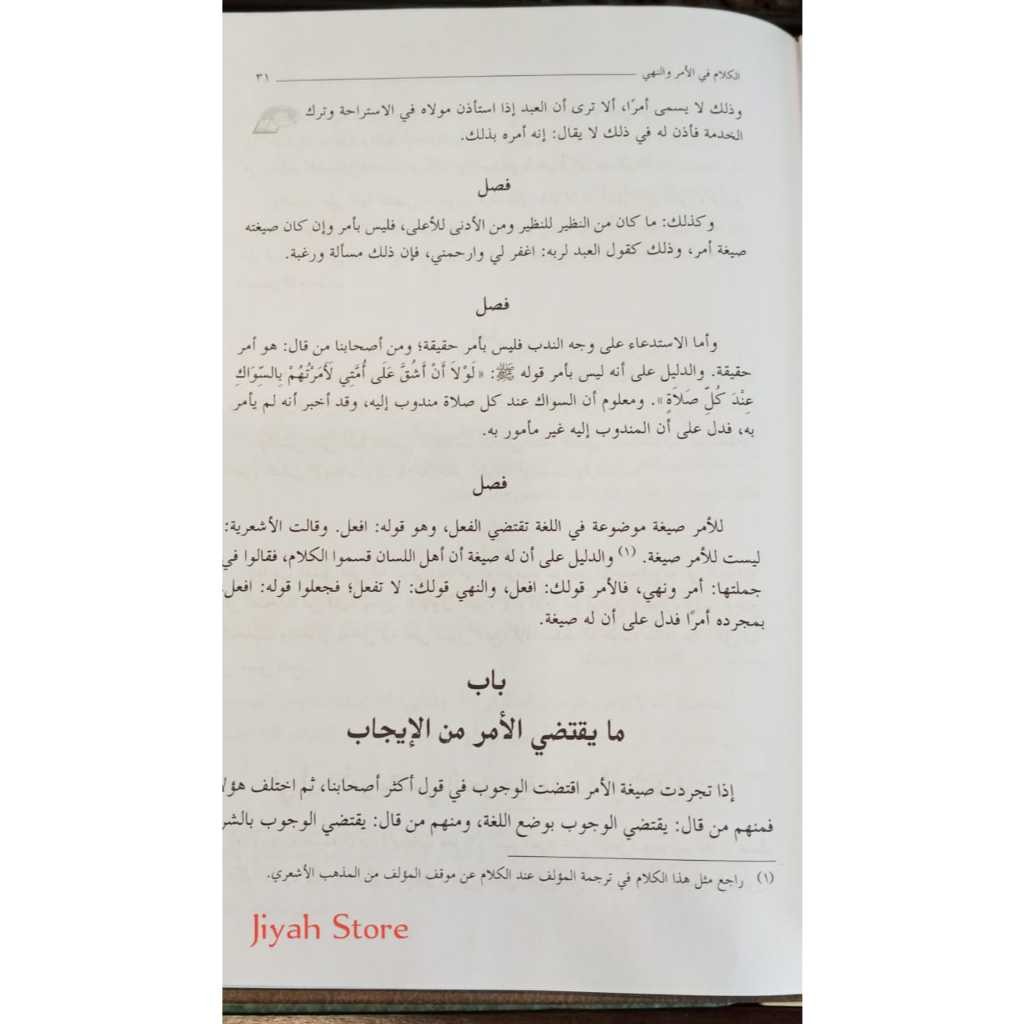 الكلام في الأمر والنهي ٣١
وذلك لا يسمى أمرًا، ألا ترى أن العبد إذا استأذن مولاه في الاستراحة وترك
الخدمة فأذن له في ذلك لا يقال: إنه أمره بذلك.
فصل
وكذلك: ما كان من النظير للنظير ومن الأدنى للأعلى، فليس بأمر وإن كان صيغته
صيغة أمر، وذلك كقول العبد لربه: اغفر لي وارحمني، فإن ذلك مسألة ورغبة.
فصل
وأما الاستدعاء على وجه الندب فليس بأمر حقيقة؛ ومن أصحابنا من قال: هو أمر
حقيقة. والدليل على أنه ليس بأمر قوله ﷺ: «لَوْلاَ أَنْ أَشُقَّ عَلَى أُمَّتِي لَأَمَرْتُهُمْ بِالسِّوَاكِ
عِنْدَ كُلِّ صَلاَةٍ». ومعلوم أن السواك عند كل صلاة مندوب إليه، وقد أخبر أنه لم يأمر
به، فدل على أن المندوب إليه غير مأمور به.
فصل
للأمر صيغة موضوعة في اللغة تقتضي الفعل، وهو قوله: افعل. وقالت الأشعرية:
ليست للأمر صيغة. (١) والدليل على أن له صيغة أن أهل اللسان قسموا الكلام، فقالوا في
جملتها: أمر ونهي، فالأمر قولك: افعل، والنهي قولك: لا تفعل؛ فجعلوا قوله: افعل
بمجرده أمرًا فدل على أن له صيغة.
باب
ما يقتضي الأمر من الإيجاب
إذا تجردت صيغة الأمر اقتضت الوجوب في قول أكثر أصحابنا، ثم اختلف
فمنهم من قال: يقتضي الوجوب بوضع اللغة، ومنهم من قال: يقتضي الوجوب
(١) راجع مثل هذا الكلام في ترجمة المؤلف عند الكلام عن موقف المؤلف من المذهب الأشعري.
Jiyah Store